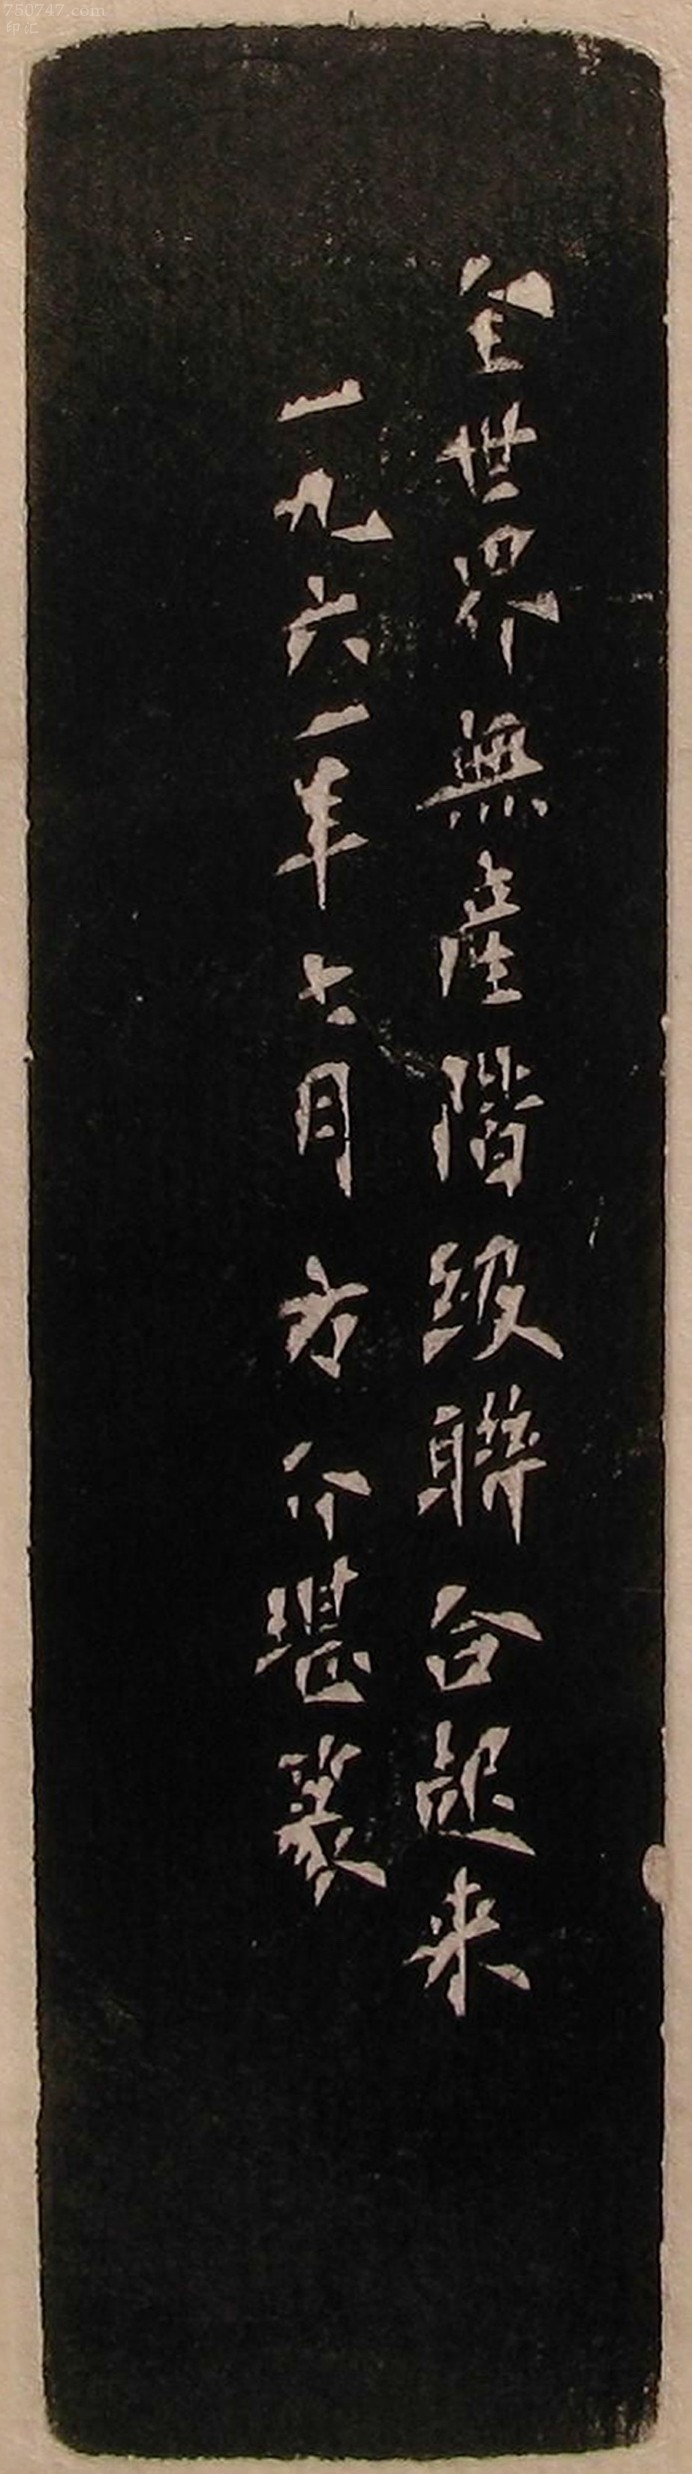 750747.com
印汇
全世界無產階級聯合起来
一九六一年七月方介堪篆